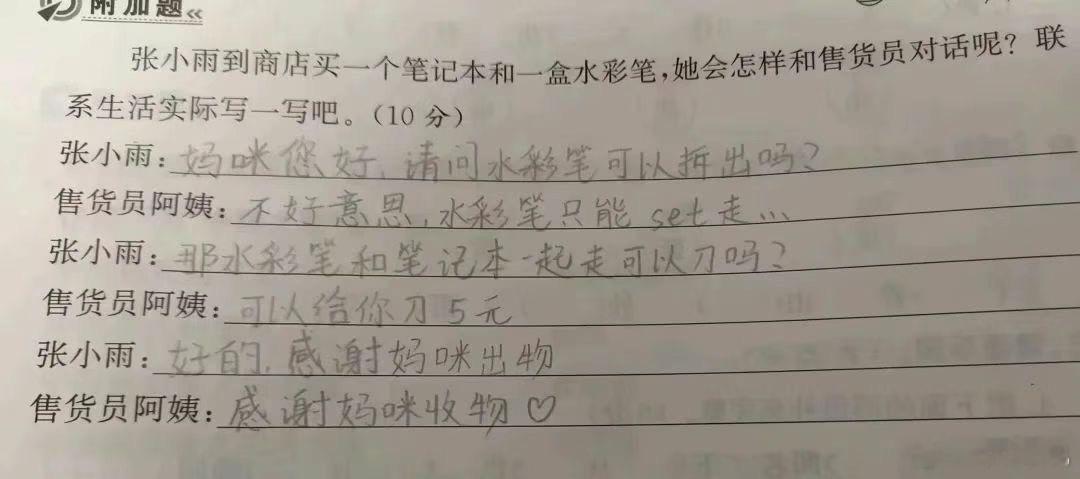 附加题
张小雨到商店买一个笔记本和一盒水彩笔,她会怎样和售货员对话呢?联
系生活实际写一写吧。(10分)
张小雨:妈咪您好,请问水彩笔可以拆出吗?
售货员阿姨:不好意思,水彩笔只能set走...
张小雨:那水彩笔和笔记本一起走可以刀吗?
售货员阿姨:可以给你刀5元
张小雨:好的,感谢妈咪出物
售货员阿姨:感谢妈咪收物♡